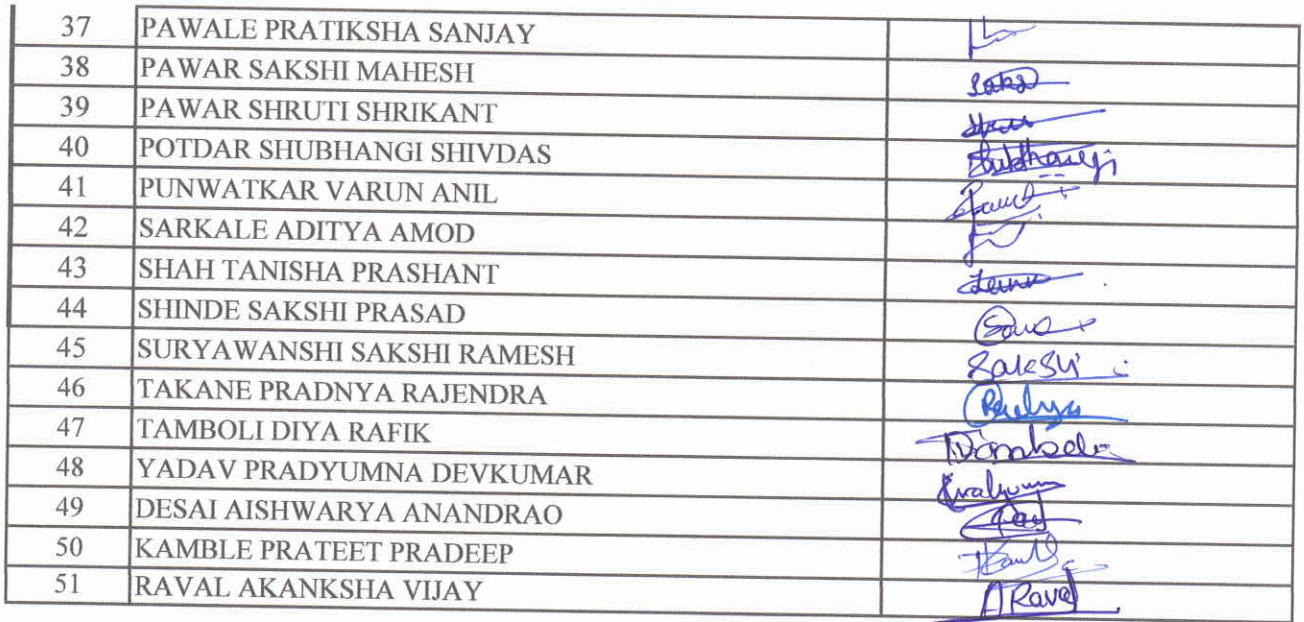 37 PAWALE PRATIKSHA SANJAY
38 PAWAR SAKSHI MAHESH
39 PAWAR SHRUTI SHRIKANT
40 POTDAR SHUBHANGI SHIVDAS Shubhangi
41 PUNWATKAR VARUN ANIL
42 SARKALE ADITYA AMOD
43 SHAH TANISHA PRASHANT
44 SHINDE SAKSHI PRASAD
45 SURYAWANSHI SAKSHI RAMESH Sakshi
46 TAKANE PRADNYA RAJENDRA
47 TAMBOLI DIYA RAFIK
48 YADAV PRADYUMNA DEVKUMAR
49 DESAI AISHWARYA ANANDRAO
50 KAMBLE PRATEET PRADEEP
51 RAVAL AKANKSHA VIJAY ARaval